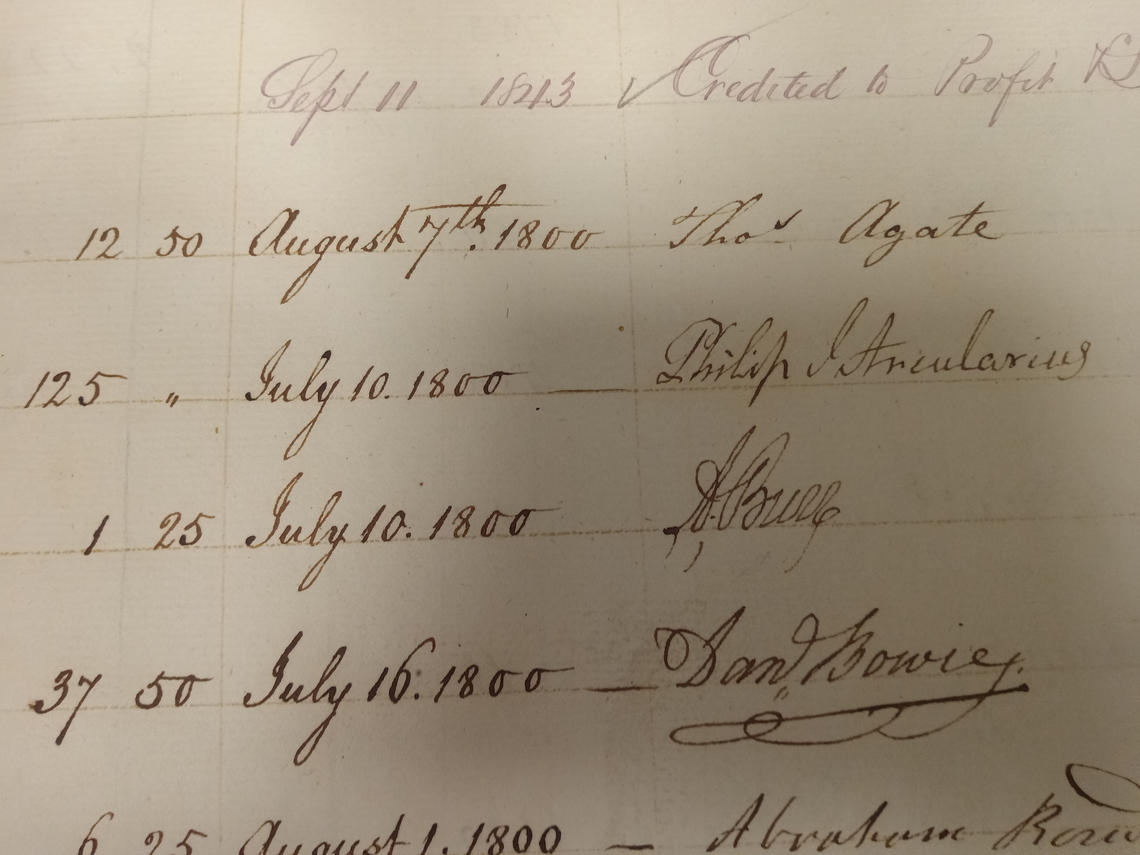 Sept 11 1843 ✓ Credited to Profit &
12 50 August 7th. 1800 Thos Agate
125 " July 10. 1800 — Philip I Arcularius
1 25 July 10. 1800 A. Burr
37 50 July 16. 1800 — Danl Bowie
6 25 August 1. 1800 — Abraham